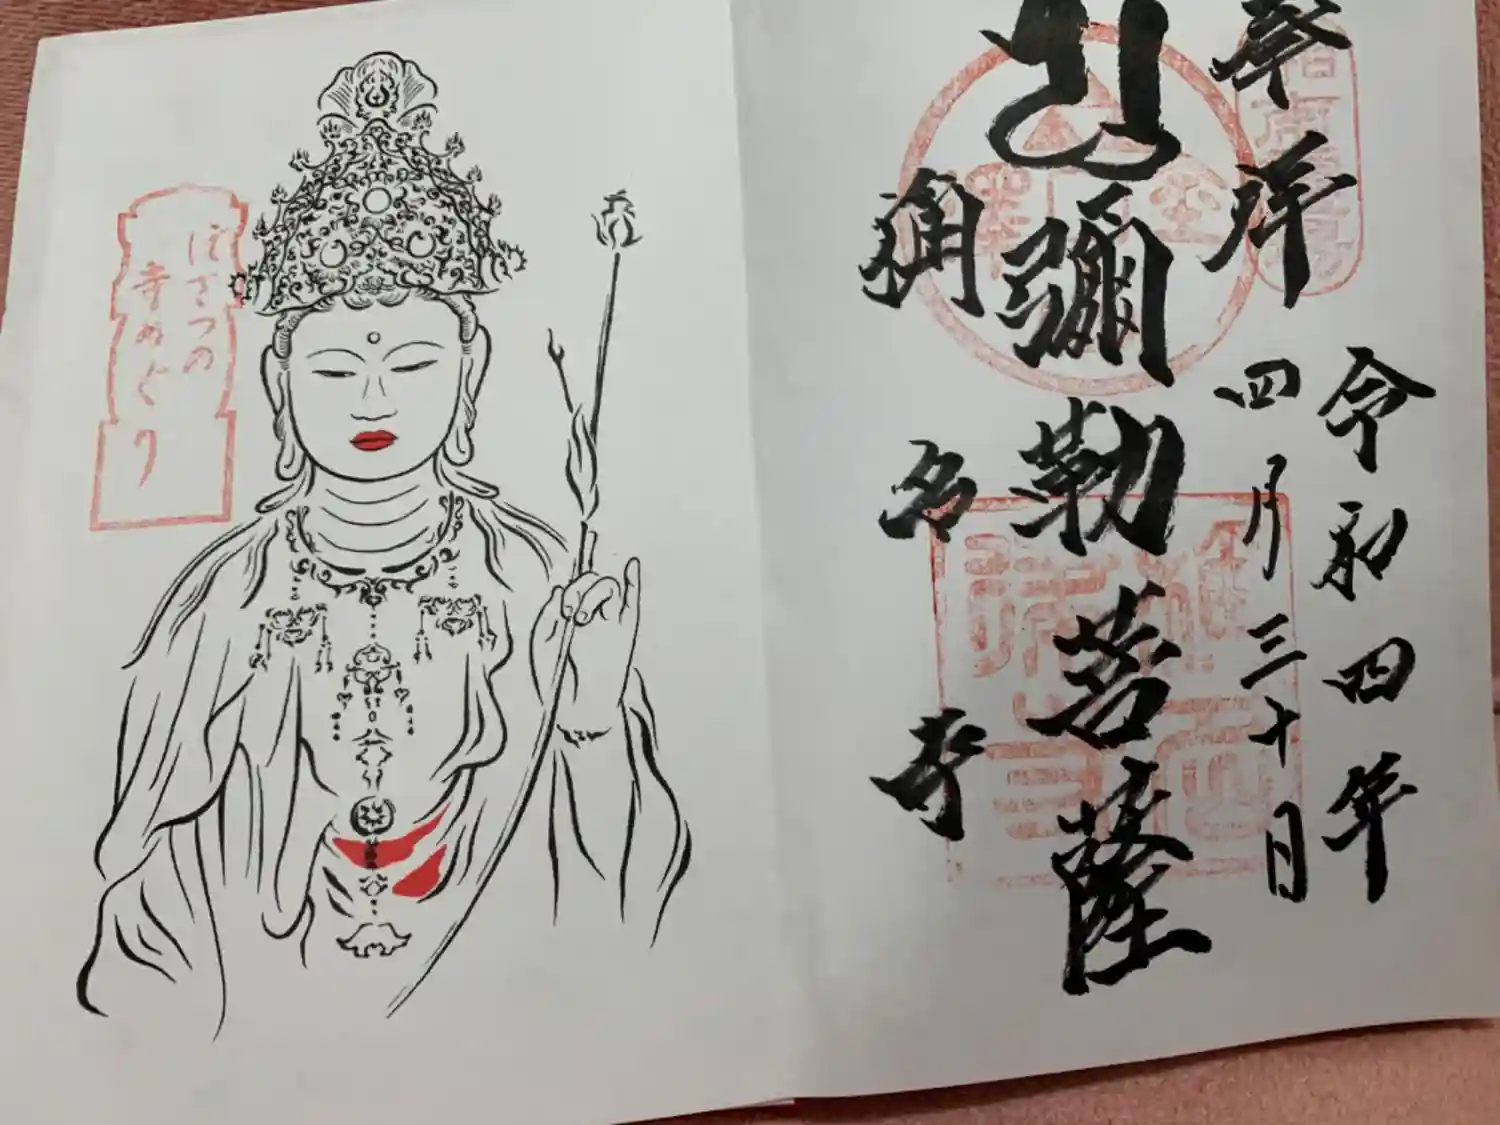 奉拝
令和四年
四月三十日
彌勒菩薩
稱名寺
ぼさつの
寺めぐり